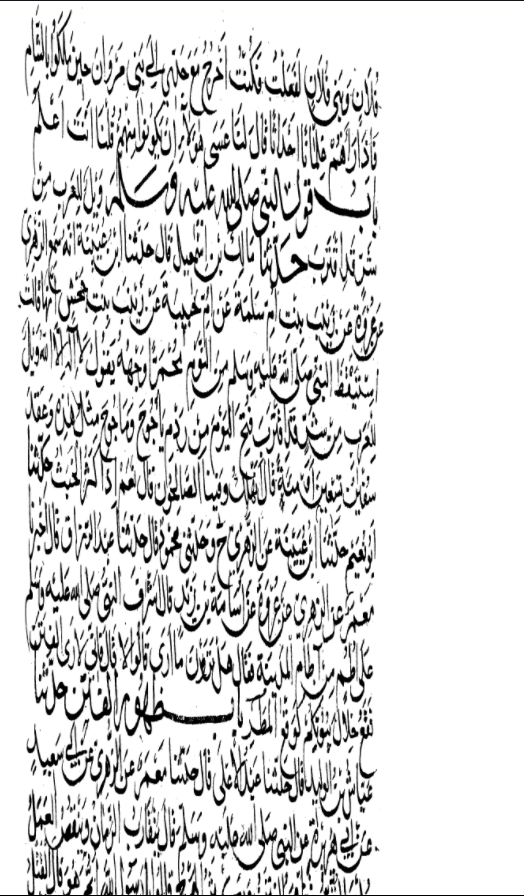 فلان وبني فلان لفعلت فكنت اخرج مع جدي الى بني مروان حين ملكوا بالشام
فاذا راهم غلمانا احداثا قال لنا عسى هؤلاء ان يكونوا منهم قلنا انت اعلم
باب قول النبي صلى الله عليه وسلم ويل للعرب من
شر قد اقترب حدثنا مالك بن اسمعيل قال حدثنا ابن عيينة انه سمع الزهري
عن عروة عن زينب بنت ام سلمة عن ام حبيبة عن زينب بنت جحش انها قالت
استيقظ النبي صلى الله عليه وسلم من النوم محمرا وجهه يقول لا اله الا الله ويل
للعرب من شر قد اقترب فتح اليوم من ردم ياجوج وماجوج مثل هذه وعقد
سفين تسعين او مئة قال انهلك وفينا الصالحون قال نعم اذا كثر الخبث حدثنا
ابو نعيم حدثنا ابن عيينة عن الزهري ح وحدثني محمود قال حدثنا عبد الرزاق قال اخبرنا
معمر عن الزهري عن عروة عن اسامة بن زيد قال اشرف النبي صلى الله عليه وسلم
على اطم من آطام المدينة فقال هل ترون ما ارى قالوا لا قال فاني لارى الفتن
تقع خلال بيوتكم كوقع المطر باب ظهور الفتن حدثنا
عياش بن الوليد قال حدثنا عبد الاعلى قال حدثنا معمر عن الزهري عن سعيد
عن ابي هريرة عن النبي صلى الله عليه وسلم قال يتقارب الزمان وينقص العمل